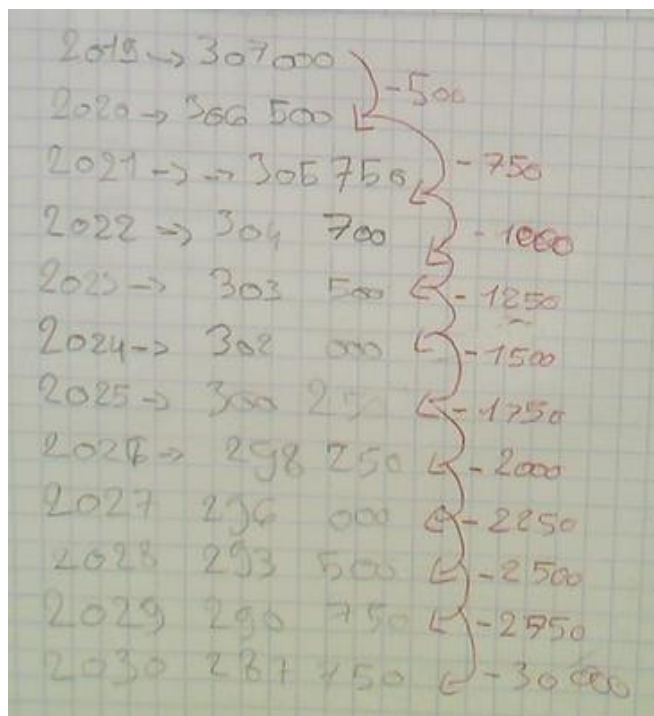 2019 -> 307000
-500
2020 -> 306 500
-750
2021 -> -> 305 750
-1000
2022 -> 304 700
-1250
2023 -> 303 500
-1500
2024 -> 302 000
-1750
2025 -> 300 250
-2000
2026 -> 298 250
-2250
2027 296 000
-2500
2028 293 500
-2750
2029 290 750
-30 000
2030 287 750